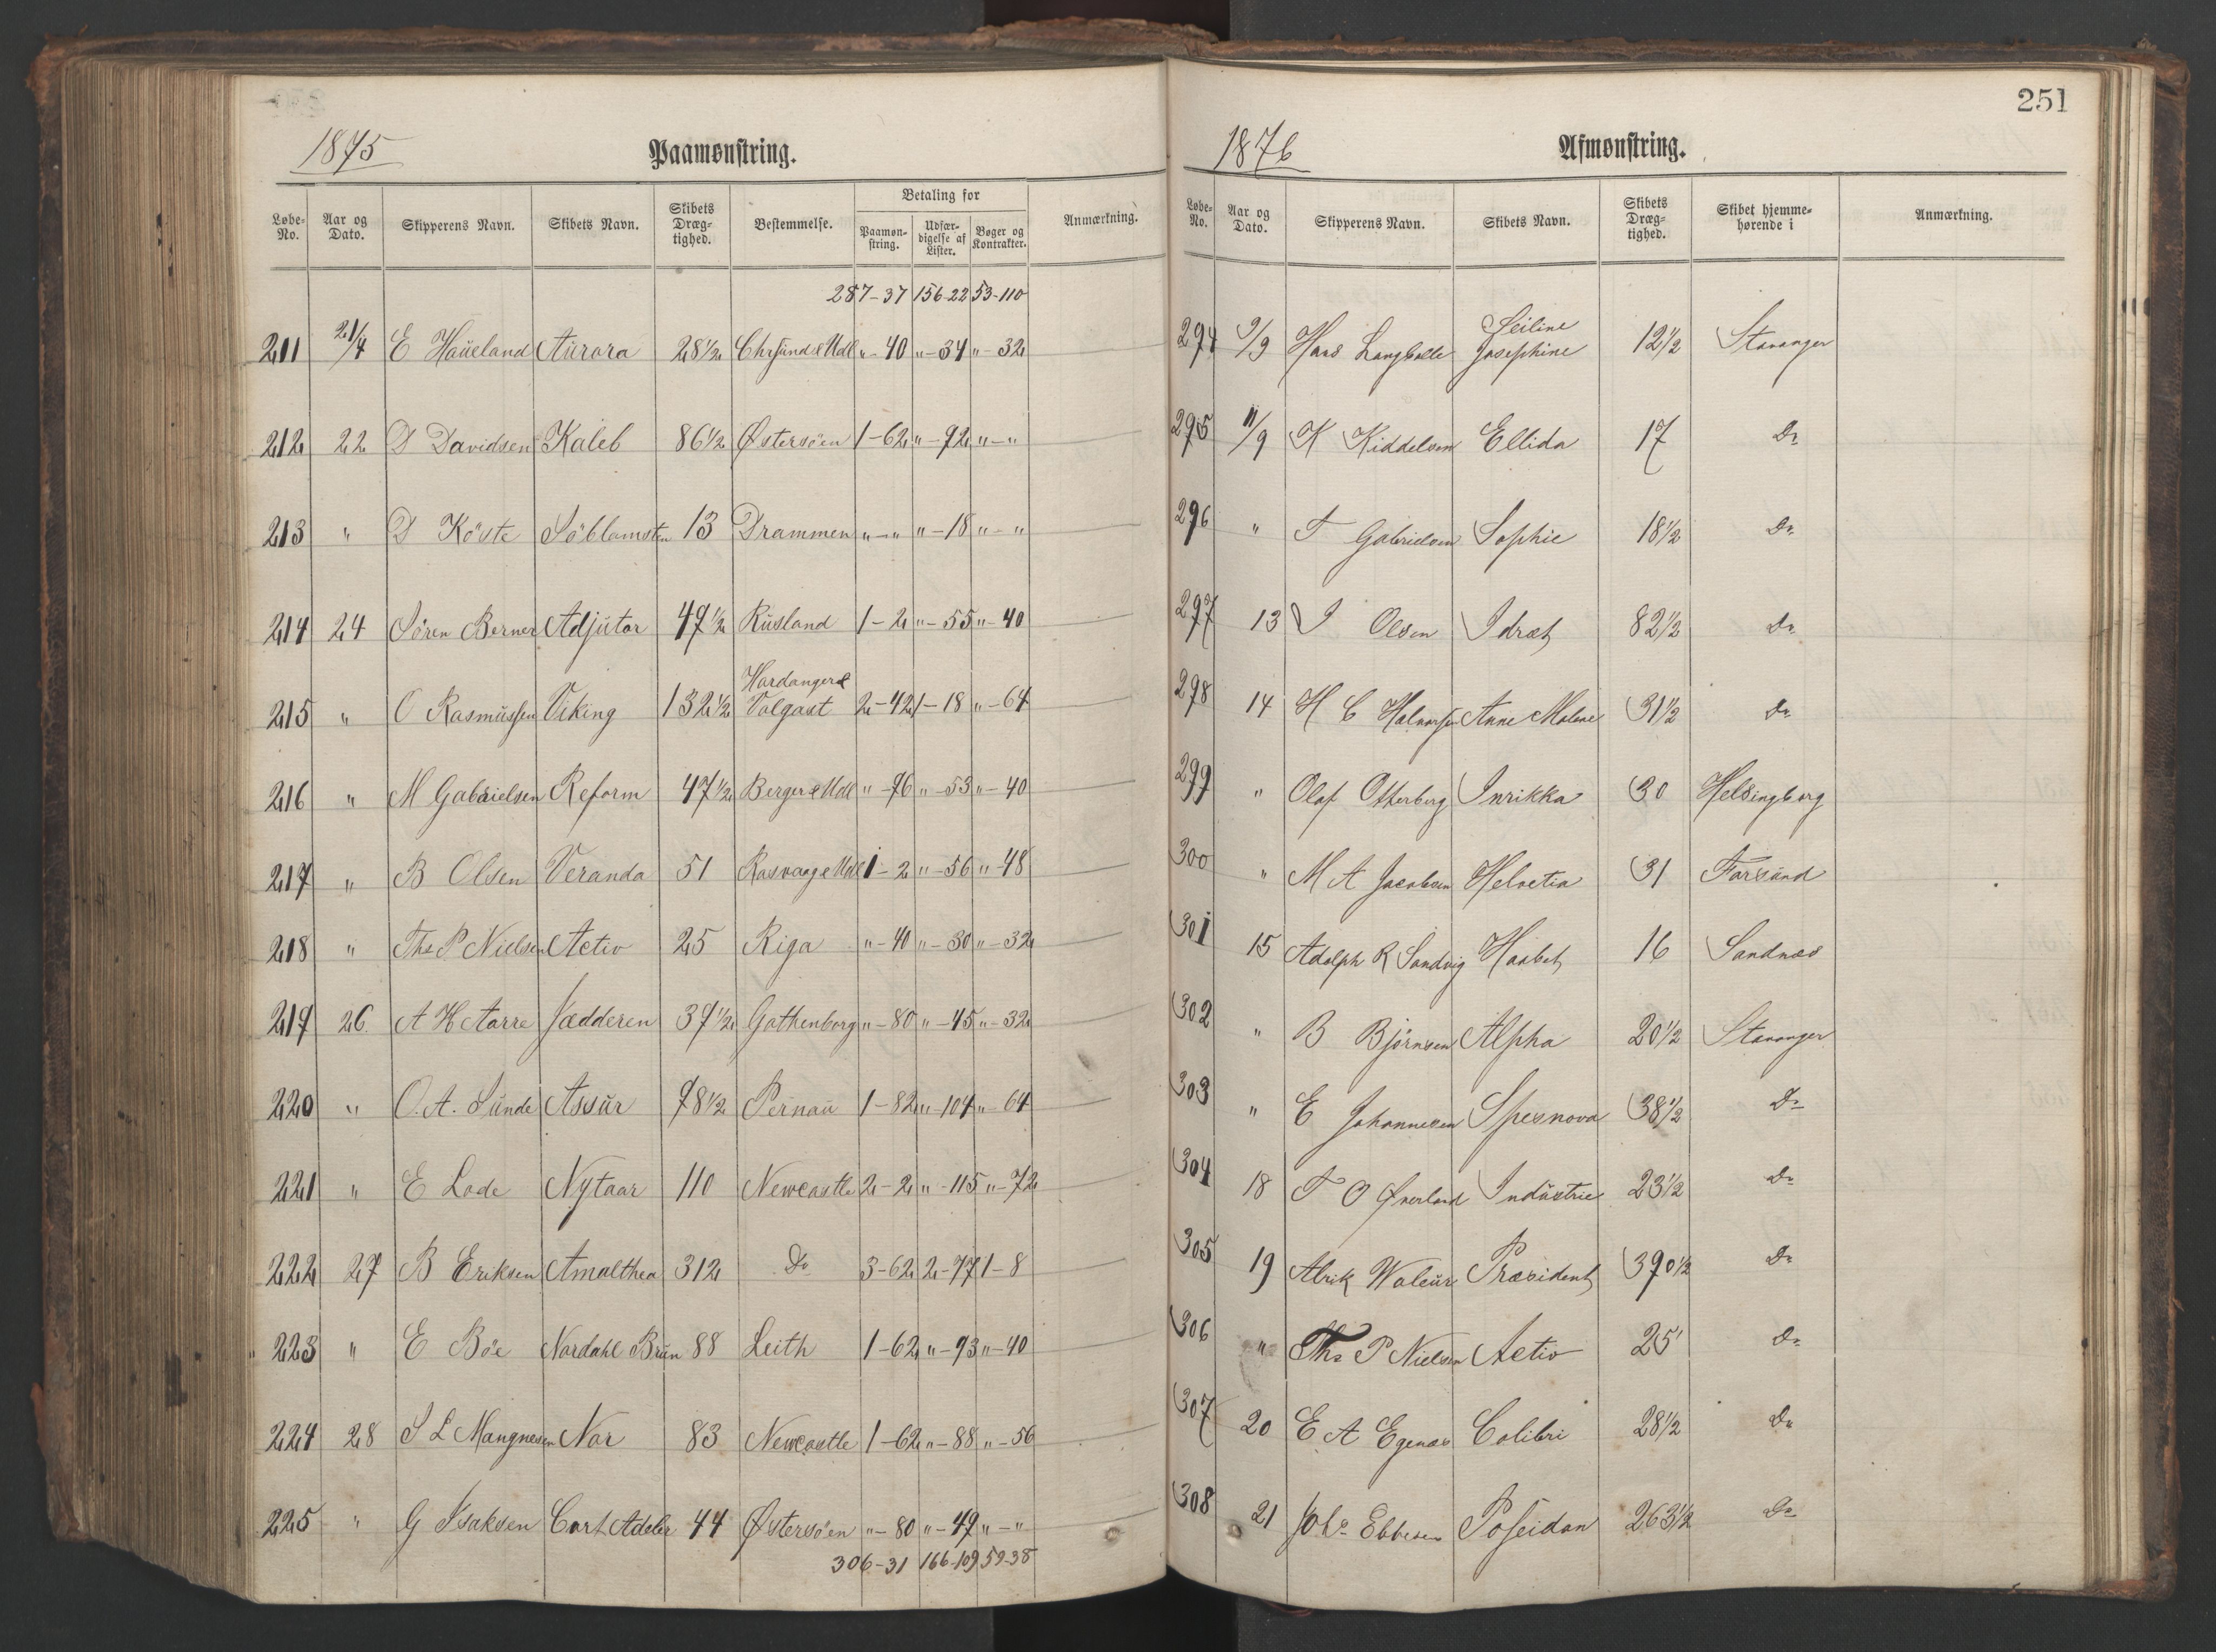 251
1875
Paamønstring.
Løbe-No. Aar og Dato. Skipperens Navn. Skibets Navn. Skibets Dræg-tighed. Bestemmelse. Betaling for Paamøn-string. Udfær-digelse af Lister. Bøger og Kontrakter. Anmærkning.
287-37 156-22 53-110
211 21/4 E Haueland Aurora 28 1/2 Chrsund & Udl " - 40 " - 34 " - 32
212 22 D Davidsen Kaleb 86 1/2 Østersöen 1 - 62 " - 92 " - "
213 " D Köste Söblomsten 13 Drammen " - " " - 18 " - "
214 24 Sören Berner Adjutor 49 1/2 Rusland 1 - 2 " - 55 " - 40
Hardanger &
215 " O Rasmussen Viking 132 1/2 Volgast 2 - 42 1 - 18 " - 64
216 " M Gabrielsen Reform 47 1/2 Berger & Udl " - 96 " - 53 " - 40
217 " B Olsen Veranda 51 Rasvaag & Udl 1 - 2 " - 56 " - 48
218 " Ths P Nielsen Activ 25 Riga " - 40 " - 30 " - 32
219 26 A H Aarre Jædderen 39 1/2 Gothenborg " - 80 " - 45 " - 32
220 " O. A. Sunde Assur 98 1/2 Pernau 1 - 82 " - 104 " - 64
221 " E Lode Nytaar 110 Newcastle 2 - 2 " - 115 " - 72
222 27 B Eriksen Amalthea 312 Do 3 - 62 2 - 77 1 - 8
223 " E Böe Nordahl Brun 88 Leith 1 - 62 " - 93 " - 40
224 28 S L Mangnesen Nor 83 Newcastle 1 - 62 " - 88 " - 56
225 " G Isaksen Cort Adeler 44 Østersöen " - 80 " - 49 " - "
306-31 166-109 59-38
1876
Afmønstring.
Løbe-No. Aar og Dato. Skipperens Navn. Skibets Navn. Skibets Dræg-tighed. Skibet hjemme-hørende i Anmærkning.
Seiline
294 9/9 Hans Langballe Josephine 12 1/2 Stavanger
295 11/9 K Kiddelsen Ellida 17 Do
296 " T Gabrielsen Sophie 18 1/2 Do
297 13 J Olsen Idræt 82 1/2 Do
298 14 H C Halvorsen Anne Malene 31 1/2 Do
299 " Olaf Otterberg Inrikka 30 Helsingborg
300 " M A Jacobsen Helvetia 31 Farsund
301 15 Adolph R Sandvig Haabet 16 Sandnæs
302 " B Björnsen Alpha 20 1/2 Stavanger
303 " E Johannesen Spesnova 38 1/2 Do
304 18 T O Øverland Industrie 23 1/2 Do
305 19 Alrik Waleur Præsident 390 1/2 Do
306 " Ths P Nielsen Activ 25 Do
307 20 E A Egenæs Colibri 28 1/2 Do
308 21 Johs Ebbesen Poseidon 263 1/2 Do